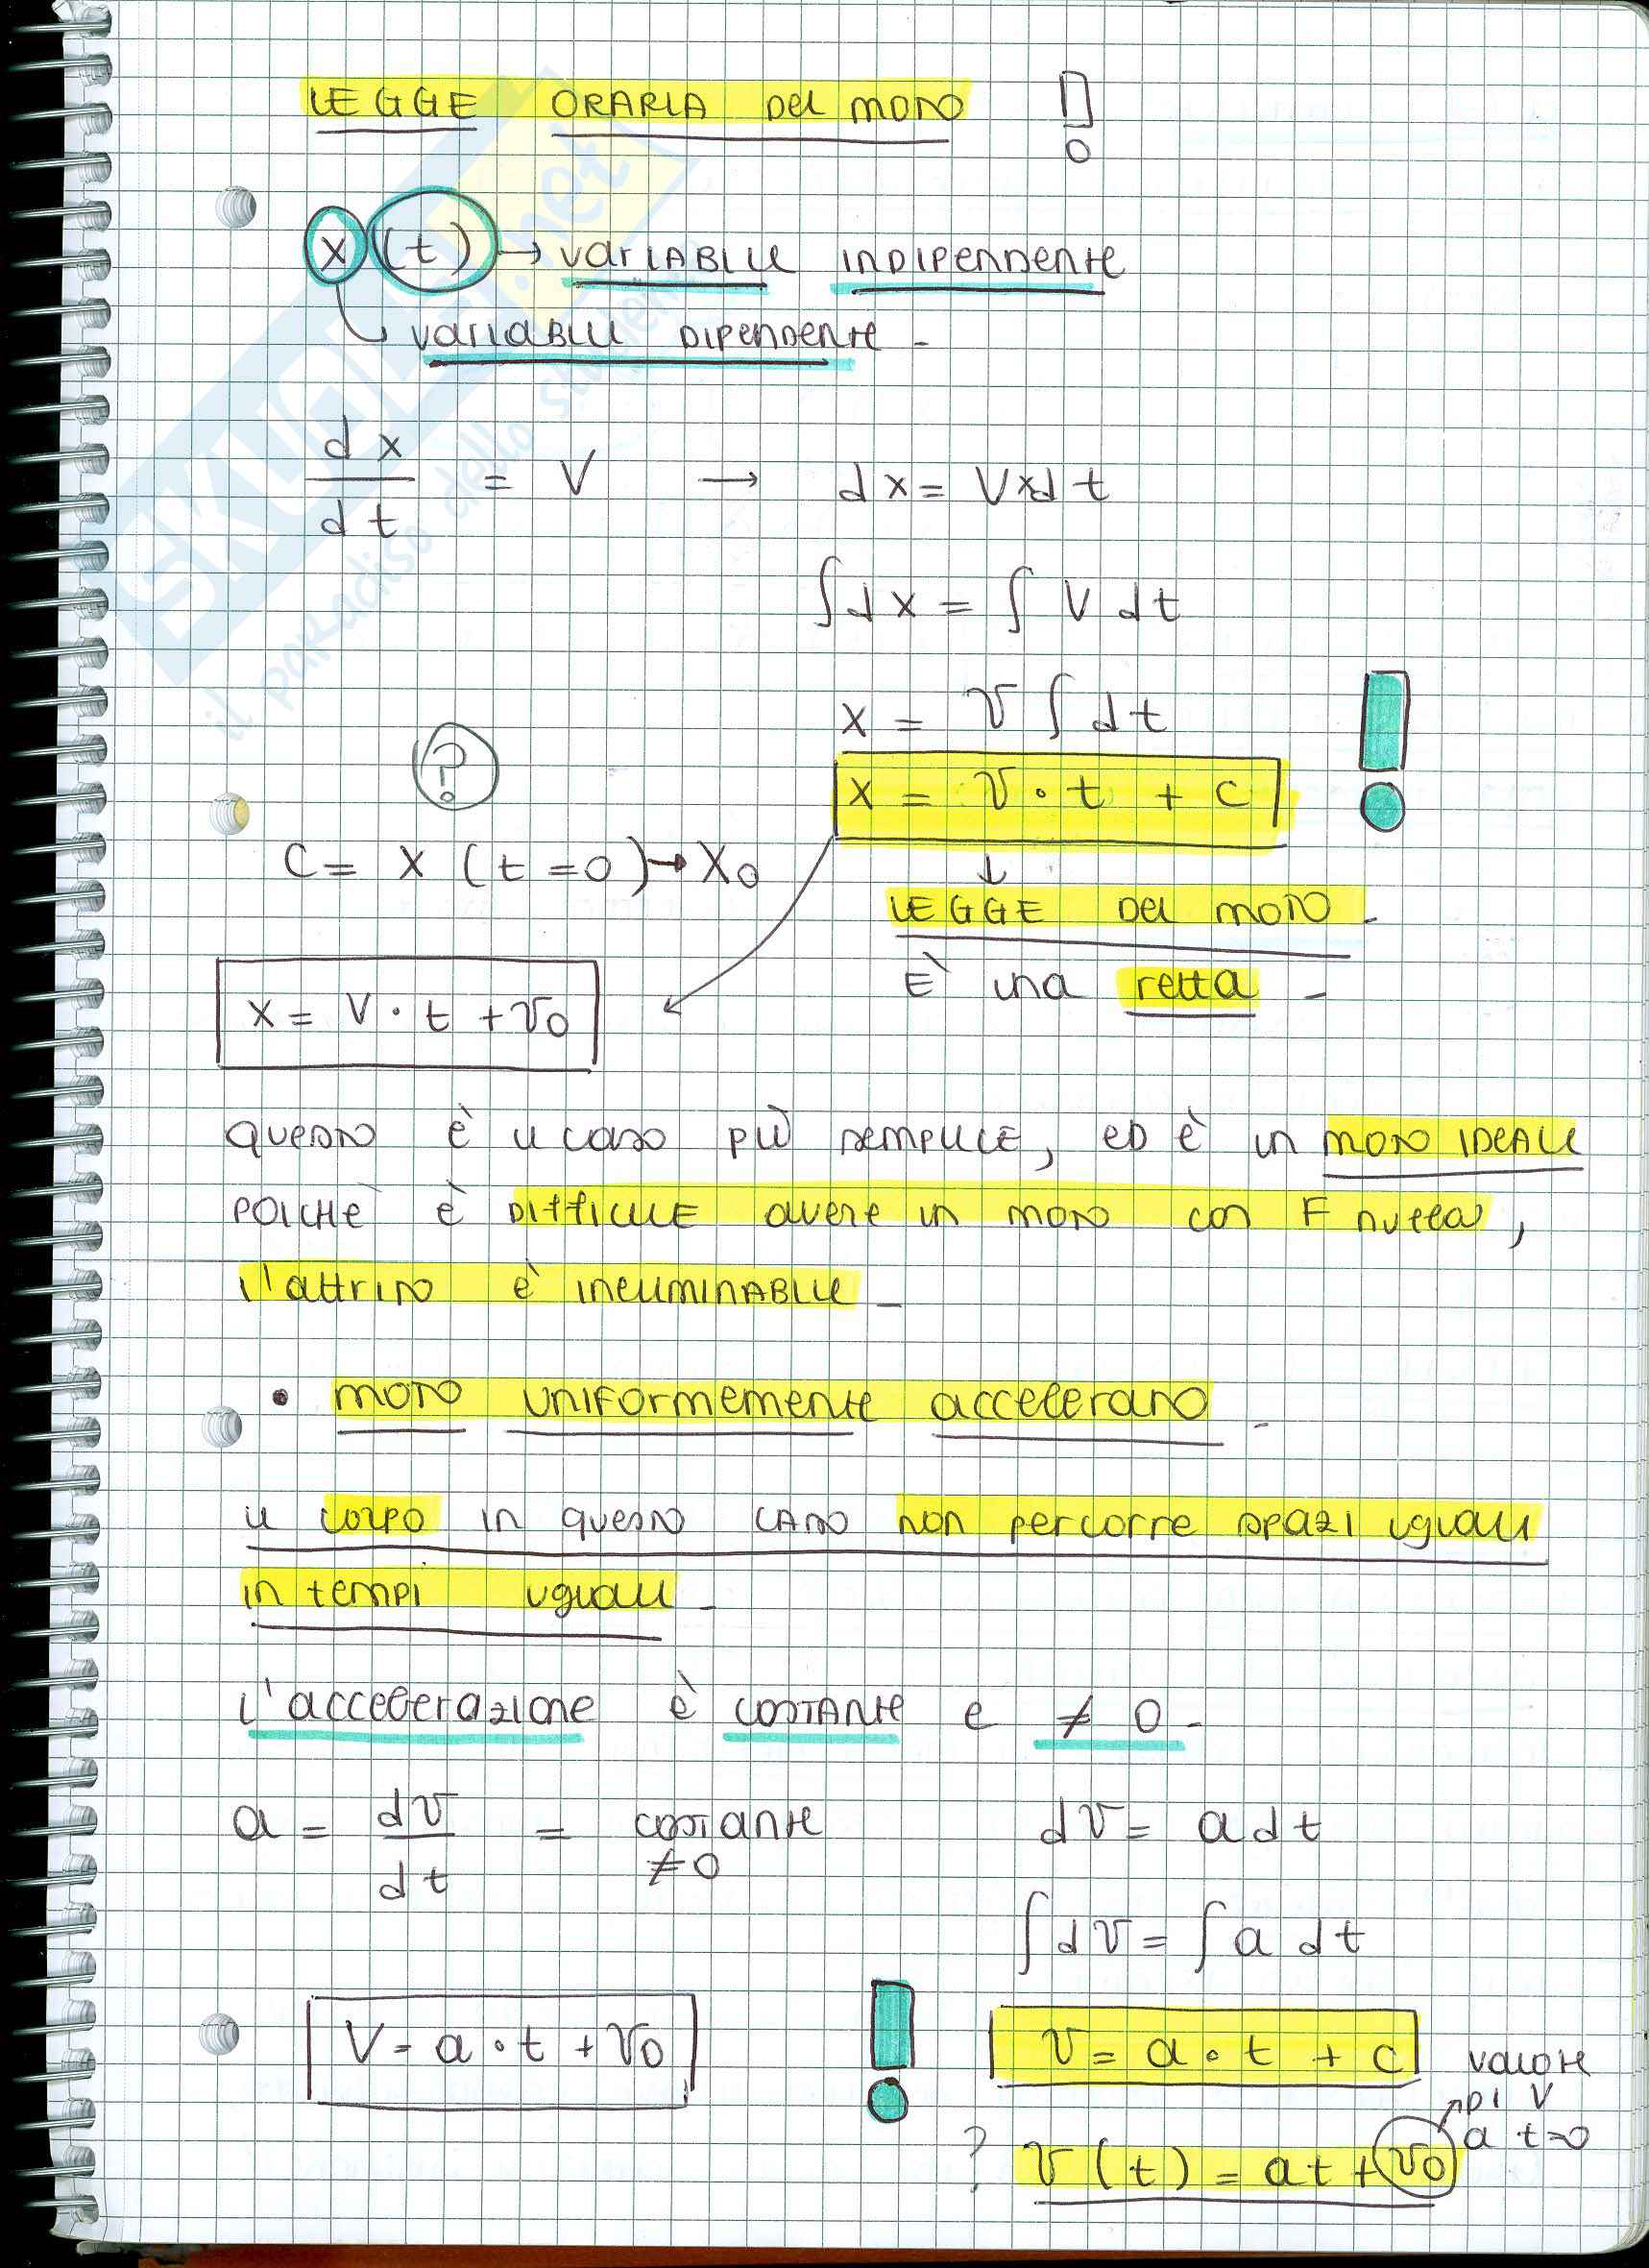 LEGGE ORARIA DEL MOTO !
x (t) → VARIABILE INDIPENDENTE
VARIABILE DIPENDENTE -
dx/dt = V → dx = V x dt
∫dx = ∫ V dt
x = v ∫ dt
?
x = v · t + c !
C = x (t = 0) → x0
↓
LEGGE DEL MOTO -
È una retta -
x = V · t + v0
QUESTO È IL CASO PIÙ SEMPLICE, ED È UN MOTO IDEALE
POICHÈ È DIFFICILE AVERE UN MOTO CON F NULLA,
L'ATTRITO È INELIMINABILE -
• MOTO UNIFORMEMENTE ACCELERATO -
IL CORPO IN QUESTO CASO NON PERCORRE SPAZI UGUALI
IN TEMPI UGUALI -
L'ACCELERAZIONE È COSTANTE e ≠ 0 -
a = dv/dt = COSTANTE ≠0
dv = a dt
∫ dv = ∫ a dt
V = a · t + v0 !
v = a · t + c
VALORE
DI V
a t=0
? v (t) = at + v0
SKUOLA.net
il paradiso dello studente